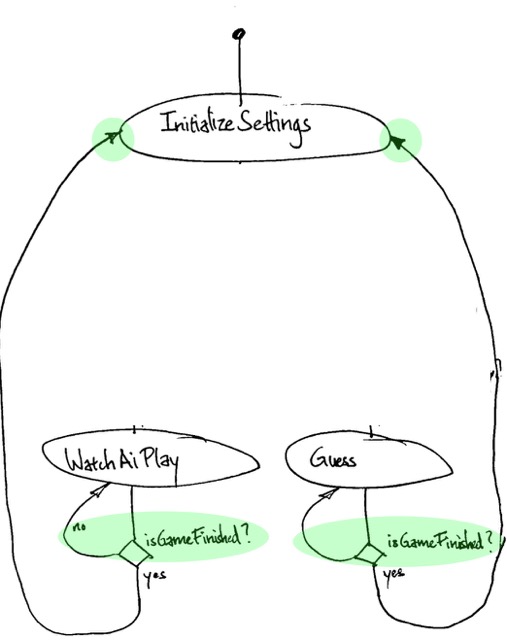 Initialize Settings
Watch Ai Play
Guess
no
isGameFinished?
isGameFinished?
yes
yes